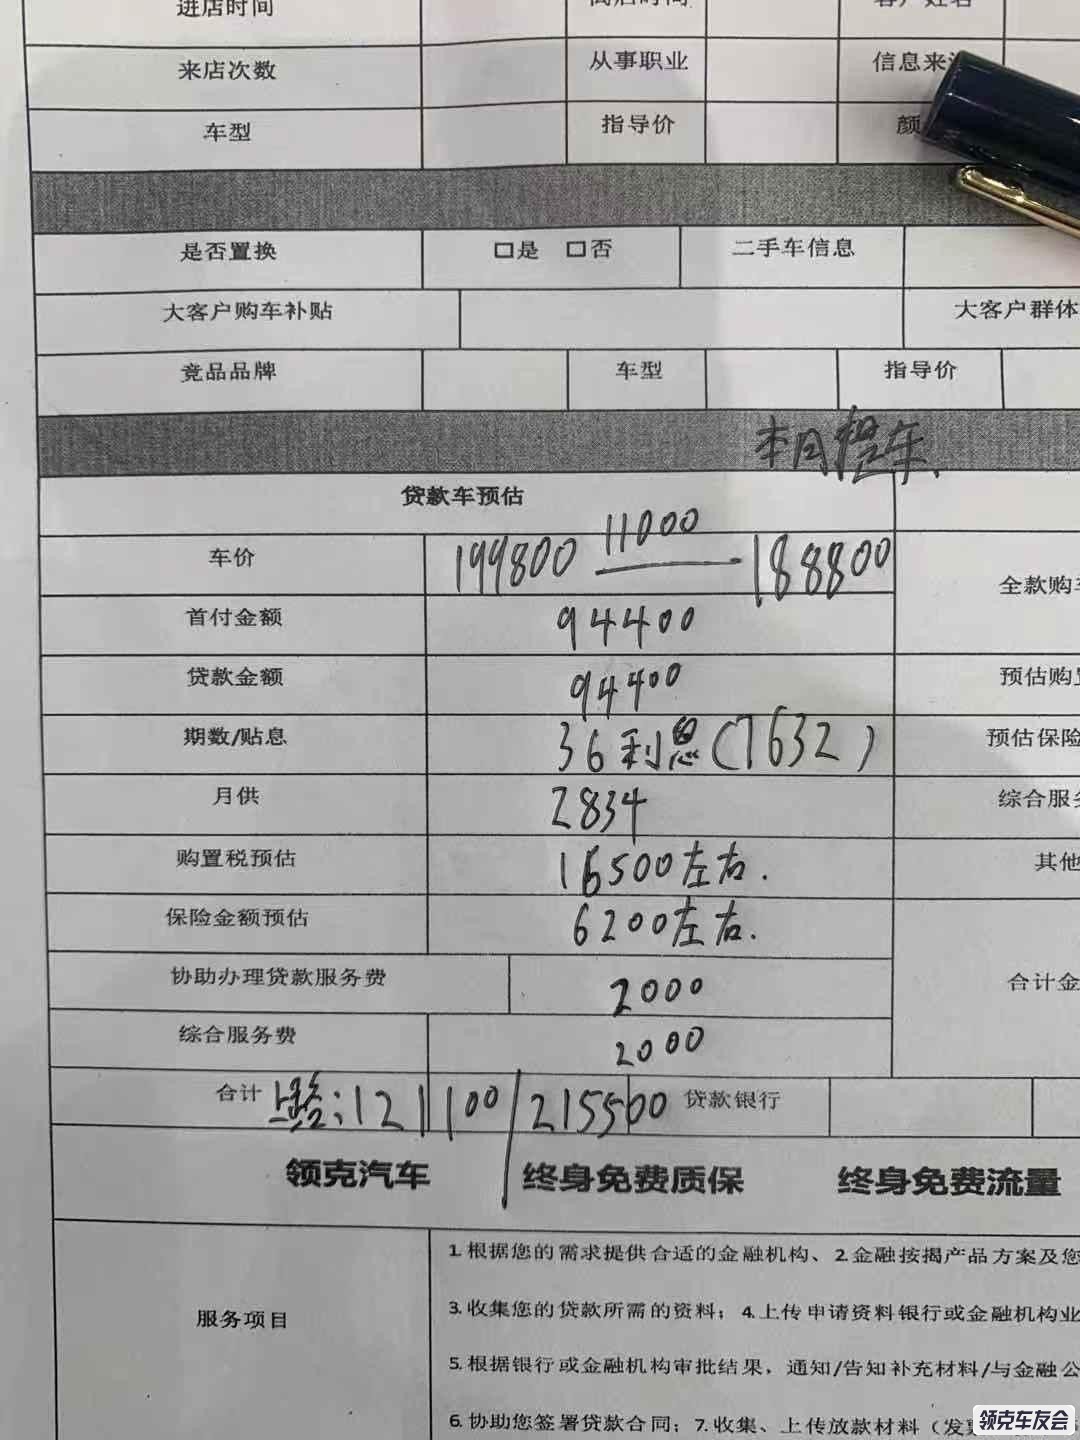 进店时间
来店次数 从事职业 信息来
车型 指导价 颜
是否置换 口是 口否 二手车信息
大客户购车补贴 大客户群体
竞品品牌 车型 指导价
本月提车
贷款车预估
车价 199800 11000 188800
全款购
首付金额 94400
贷款金额 94400 预估购
期数/贴息 36利息(7632) 预估保险
月供 2834 综合服
购置税预估 16500左右. 其他
保险金额预估 6200左右.
协助办理贷款服务费 2000 合计金
综合服务费 2000
合计 上路:121100/215500 贷款银行
领克汽车 终身免费质保 终身免费流量
1.根据您的需求提供合适的金融机构、2.金融按揭产品方案及您
服务项目 3.收集您的贷款所需的资料；4.上传申请资料银行或金融机构业
5.根据银行或金融机构审批结果，通知/告知补充材料/与金融公
6.协助您签署贷款合同；7.收集、上传放款材料（发票
领克车友会